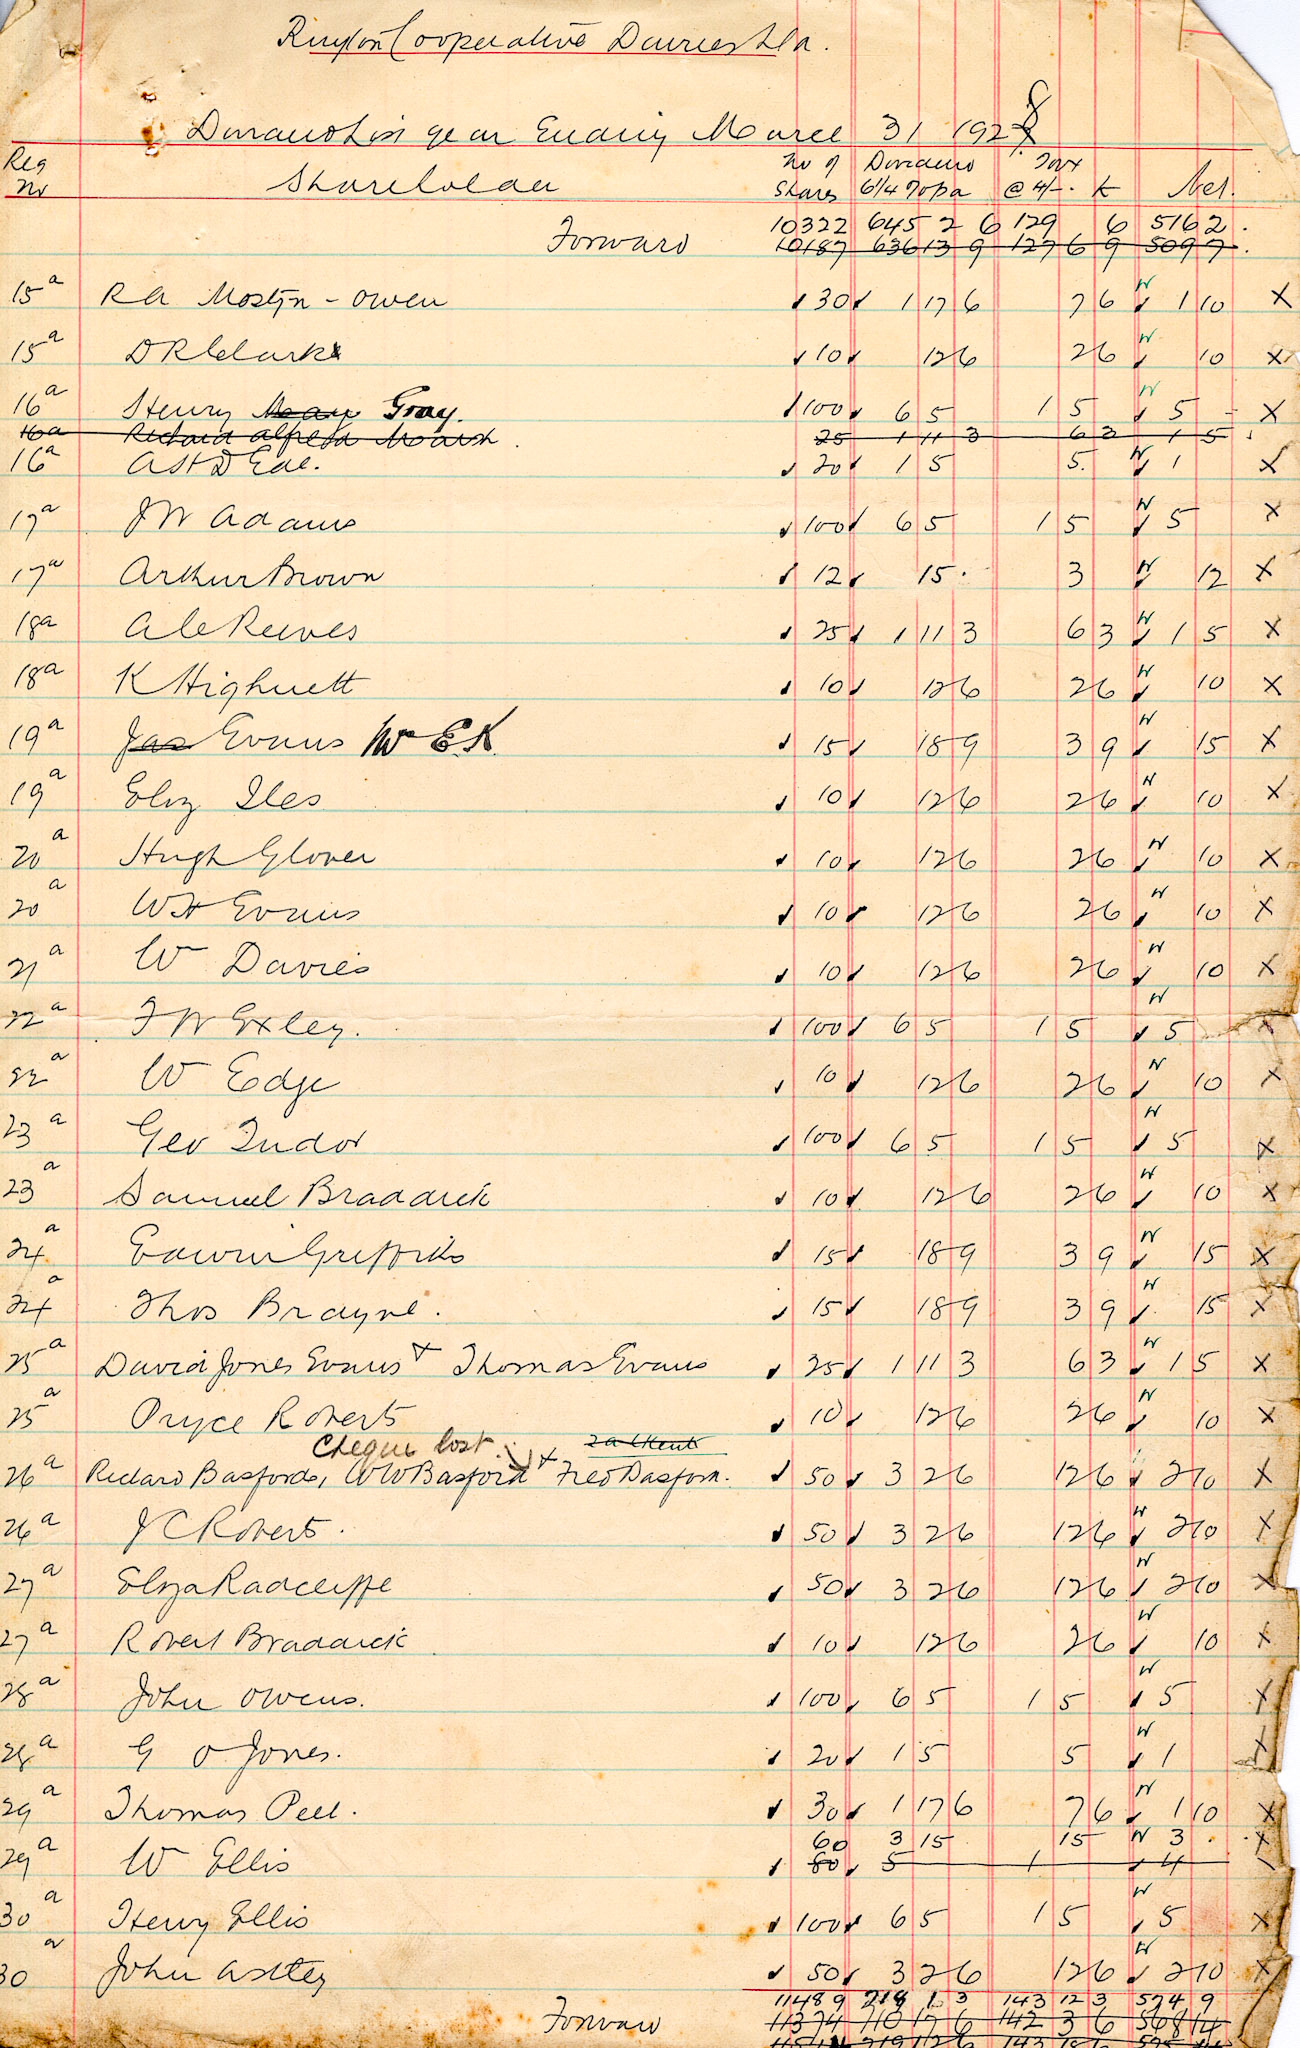 Ruyton Cooperative Dairies Ltd.
Dividend List year Ending March 31 1928
Reg No Shareholder No of Shares Dividend 6¼ % pa Tax @ 4/- £ Net.
Forward 10322 645 2 6 129 6 516 2
10187 636 13 9 127 6 9 509 7
15a RA Mostyn-Owen 30 1 17 6 7 6 W 1 10 X
15a DR Clark 10 12 6 2 6 W 10 X
16a Henry Gray. 100 6 5 1 5 W 5 - X
16a Richard Alfred Marsh. 25 1 11 3 6 3 1 5
16a AStD Ede. 20 1 5 5. W 1 X
17a JW Adams 100 6 5 1 5 W 5 X
17a Arthur Brown 12 15. 3 W 12 X
18a AC Reeves 25 1 11 3 6 3 W 1 5 X
18a K Highnett 10 12 6 2 6 W 10 X
19a Jas Evans Mrs E.K. 15 18 9 3 9 W 15 X
19a Eliz Iles 10 12 6 2 6 W 10 X
20a Hugh Glover 10 12 6 2 6 W 10 X
20a WH Evans 10 12 6 2 6 W 10 X
21a W Davies 10 12 6 2 6 W 10 X
22a FW Exley. 100 6 5 1 5 W 5 X
22a W Edge 10 12 6 2 6 W 10 X
23a Geo Tudor 100 6 5 1 5 W 5 X
23a Samuel Braddick 10 12 6 2 6 W 10 X
24a Edwin Griffiths 15 18 9 3 9 W 15 X
24a Thos Brayne. 15 18 9 3 9 W 15 X
25a David Jones Evans + Thomas Evans 25 1 11 3 6 3 W 1 5 X
25a Pryce Roberts 10 12 6 2 6 W 10 X
Cheque lost.
26a Richard Basford, WW Basford + Fred Basford. 50 3 2 6 12 6 2 10 X
26a JC Roberts. 50 3 2 6 12 6 W 2 10 X
27a Eliza Radcliffe 50 3 2 6 12 6 W 2 10 X
27a Robert Braddick 10 12 6 2 6 W 10 X
28a John Owens. 100 6 5 1 5 W 5 X
28a G O Jones. 20 1 5 5 W 1 X
29a Thomas Peel. 30 1 17 6 7 6 W 1 10 X
60 3 15 15 W 3 X
29a W Ellis 80 5 1 4
30a Henry Ellis 100 6 5 1 5 W 5 X
30a John Astley 50 3 2 6 12 6 W 2 10 X
11489 718 1 3 143 12 3 574 9
Forward 11374 710 17 6 142 3 6 568 14